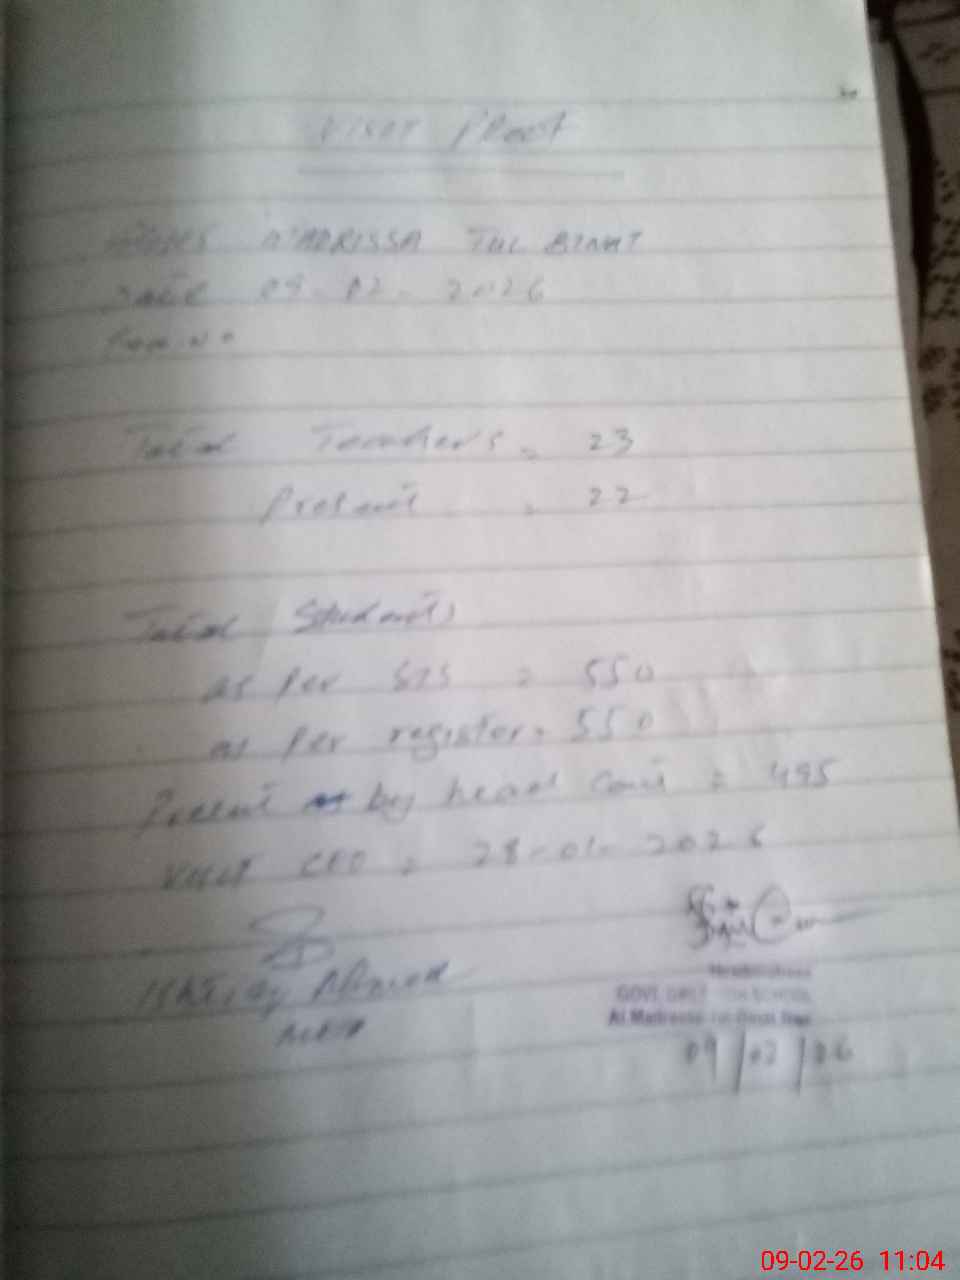 VISIT PROOF
MADRISSA TUL BINAT
Date 09-02-2026
Total Teachers = 23
Present = 22
Total Students
as per SIS = 550
as per register = 550
Present by head count = 495
VISIT CEO = 28-01-2026
Ahmed
AEO
GOVT. GIRLS SCHOOL
Al Madrassa-tul-Binat
09/02/26
09-02-26 11:04